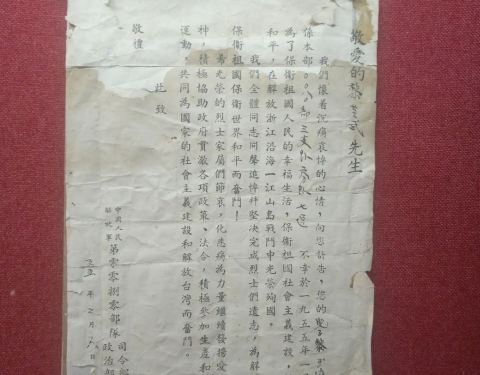 敬爱的黎 先生
我們懷着沉痛哀悼的心情，向您訃告，您的兒子黎
係本部 不幸於一九五五年一
為了保衛祖國人民的幸福生活，保衛祖國社會主義建設，
和平，在解放浙江沿海一江山島戰鬥中光榮殉國，
我們全體同志同聲追悼幷坚决完成烈士們遺志，為解
保衛祖國保衛世界和平而奮鬥！
希光榮的烈士家屬們節哀，化悲痛為力量繼續發揚愛
神，積極協助政府貫澈各項政策、法令，積極參加生產和
運動，共同為國家的社會主義建設和解放台灣而奮鬥。
此致
敬禮
中國人民解放軍第零零捌零部隊司令部政治部
五五年 月 日